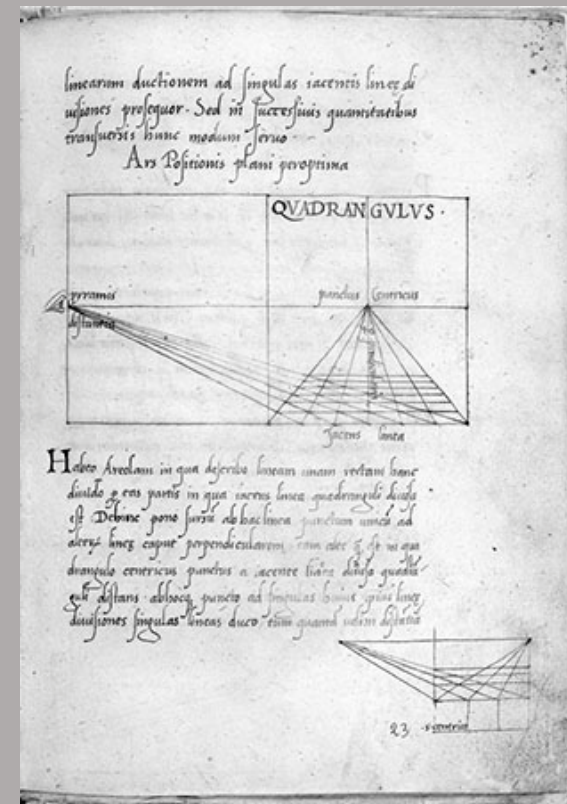 linearum ductionem ad singulas iacentis lineę di
uisiones prosequor. Sed in successiuis quantitatibus
transuersis hunc modum seruo
Ars Positionis plani peroptima
QVADRANGVLVS.
pyramis punctus Centricus
distantia
Jacens linea
Habeo Areolam in qua describo lineam unam rectam hanc
diuido p eas partis in qua iacens linea quadranguli diuisa
est Dehinc pono sursū ab hac linea punctum unicū ad
alterę lineę caput perpendicularem tam alte q̄ est in qua
drangulo centricus punctus a iacente diuisa quadrā
guli distans abhocq puncto ad singulas huius ipius lineę
diuisiones singulas lineas duco tum quantā uelim distātiā
23 centric